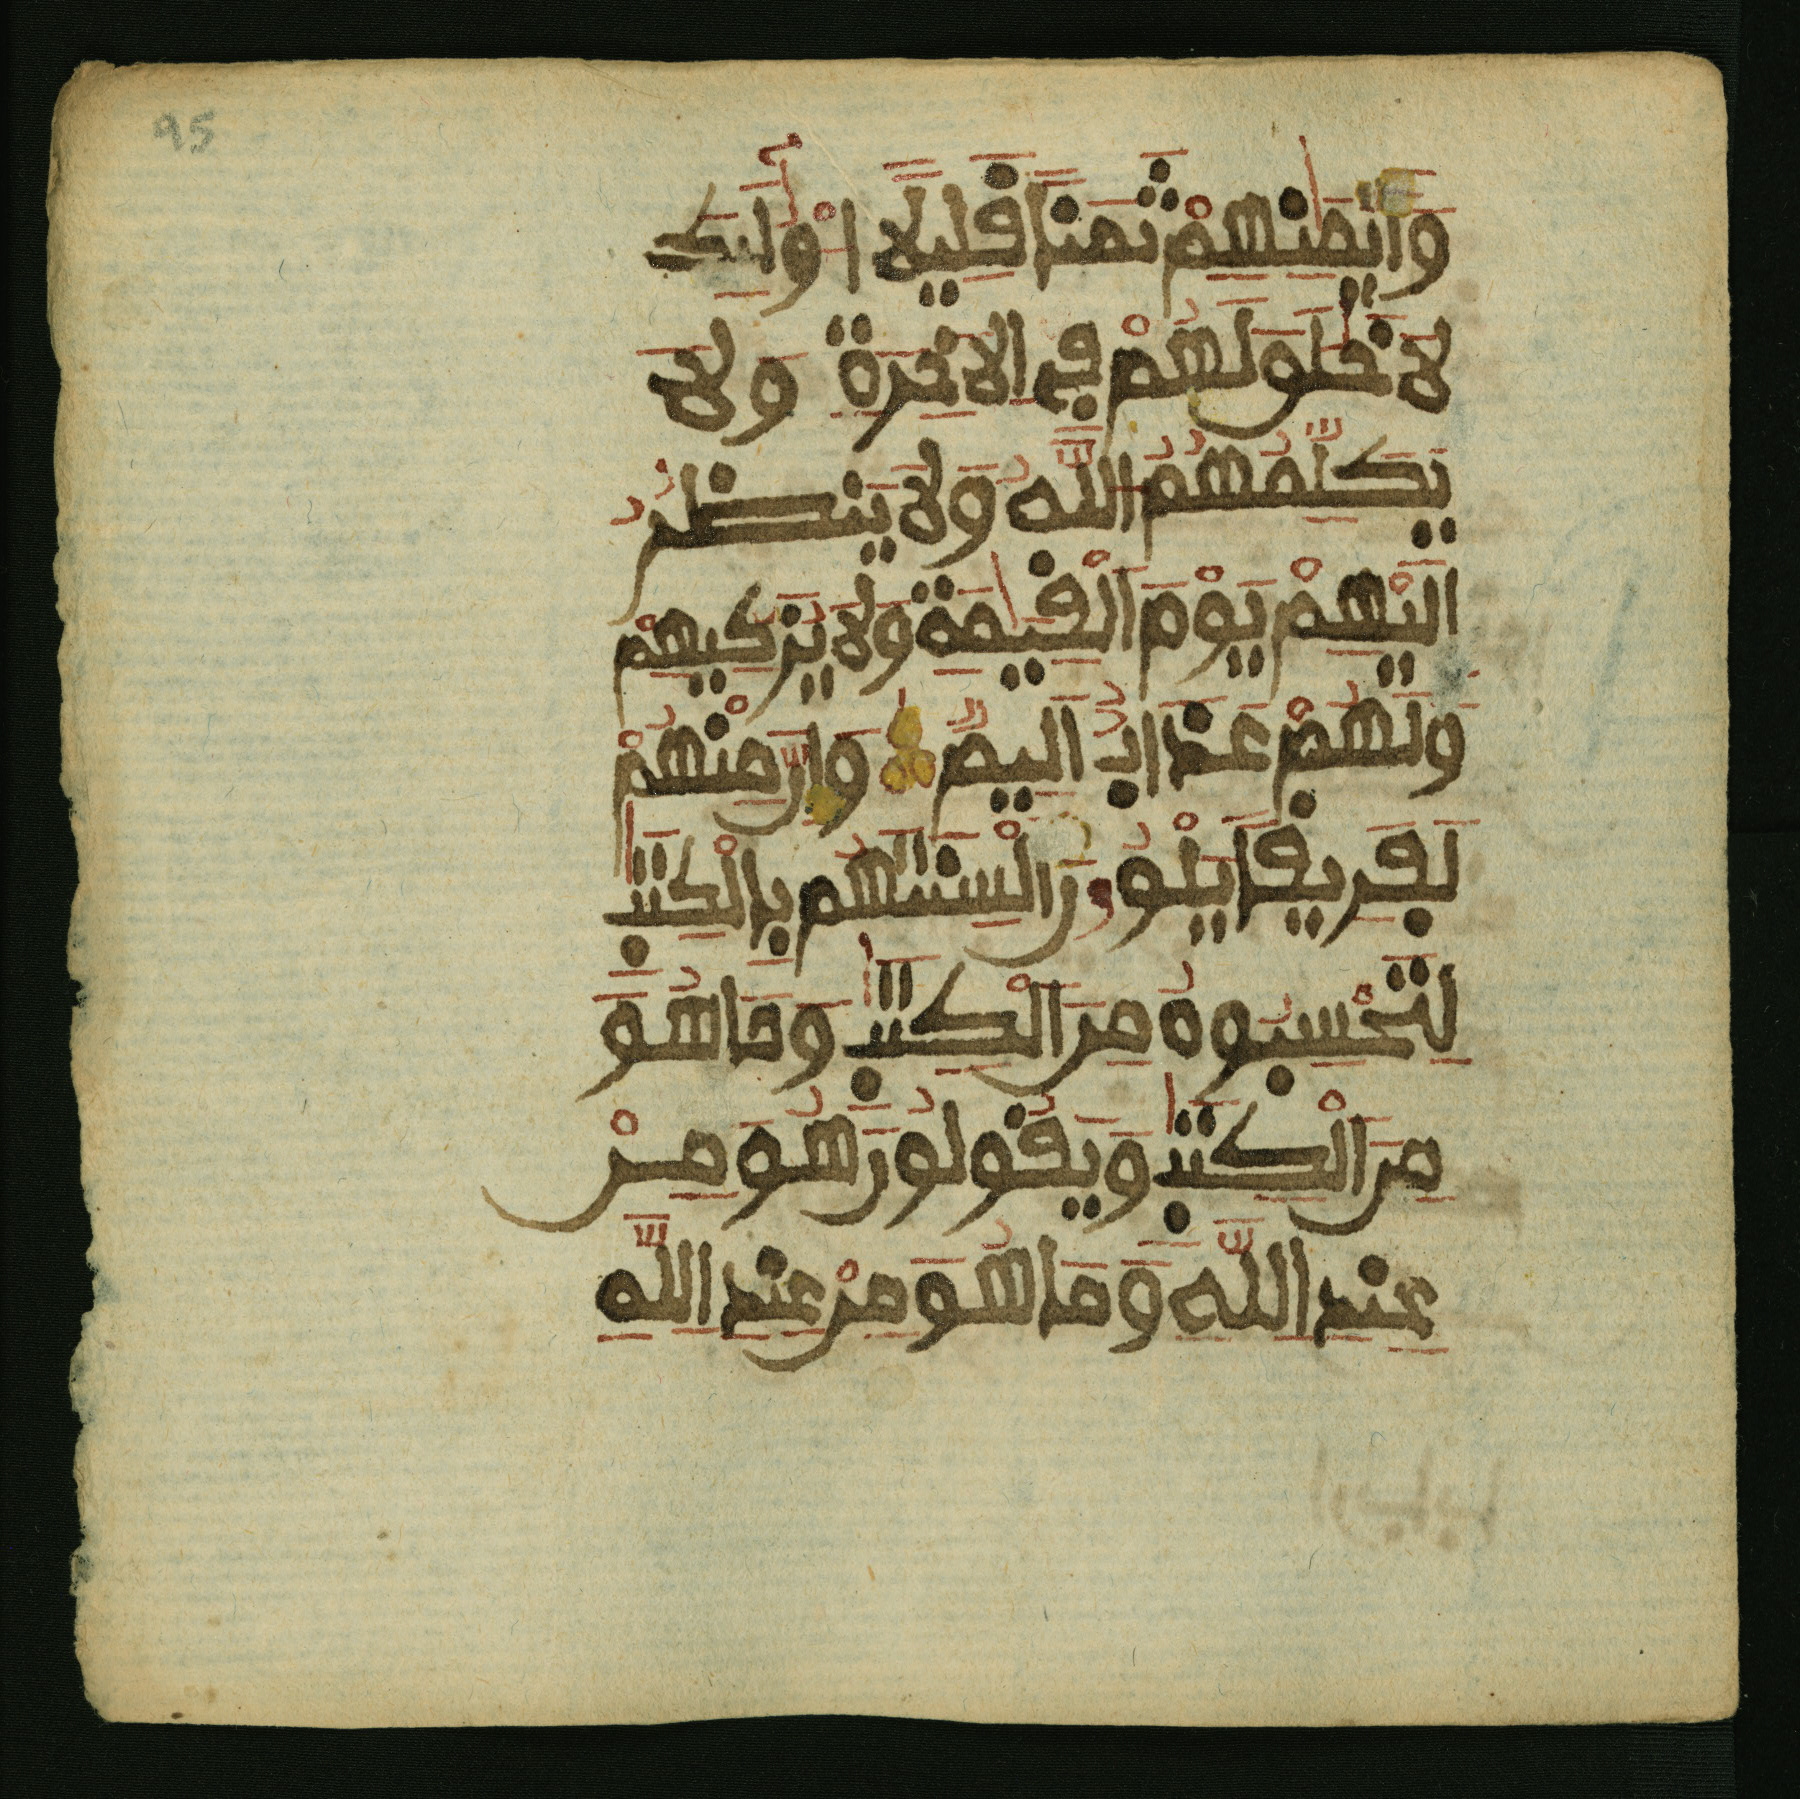 95
وَأَيْمَٰنِهِمْ ثَمَنًا قَلِيلًا اُوْلَٰٓئِكَ
لَا خَلَٰقَ لَهُمْ فِي الَاخِرَةِ وَلَا
يُكَلِّمُهُمُ اللَّهُ وَلَا يَنظُرُ
إِلَيْهِمْ يَوْمَ الْقِيَٰمَةِ وَلَا يُزَكِّيهِمْ
وَلَهُمْ عَذَابٌ اَلِيمٌ وَإِنَّ مِنْهُمْ
لَفَرِيقًا يَلْوُۥنَ أَلْسِنَتَهُم بِالْكِتَٰبِ
لِتَحْسِبُوهُ مِنَ الْكِتَٰبِ وَمَا هُوَ
مِنَ الْكِتَٰبِ وَيَقُولُونَ هُوَ مِنْ
عِندِ اللَّهِ وَمَا هُوَ مِنْ عِندِ اللَّهِ